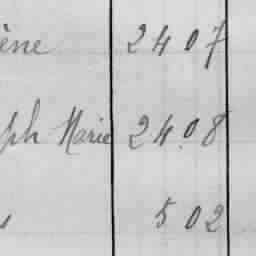 ène 2407
ph Marie 2408
s 502